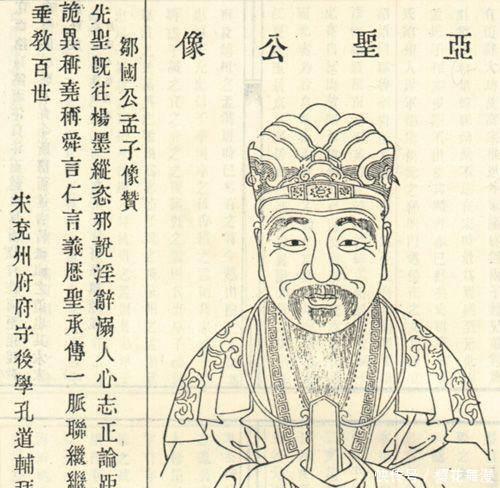 亞聖公像
鄒國公孟子像贊
先聖既往楊墨縱恣邪說淫辭溺人心志正論距
詭異稱堯稱舜言仁言義愿聖承傳一脈聯繼繼
垂教百世
宋兗州府府守後學孔道輔拜
快传号/樱花舞漫